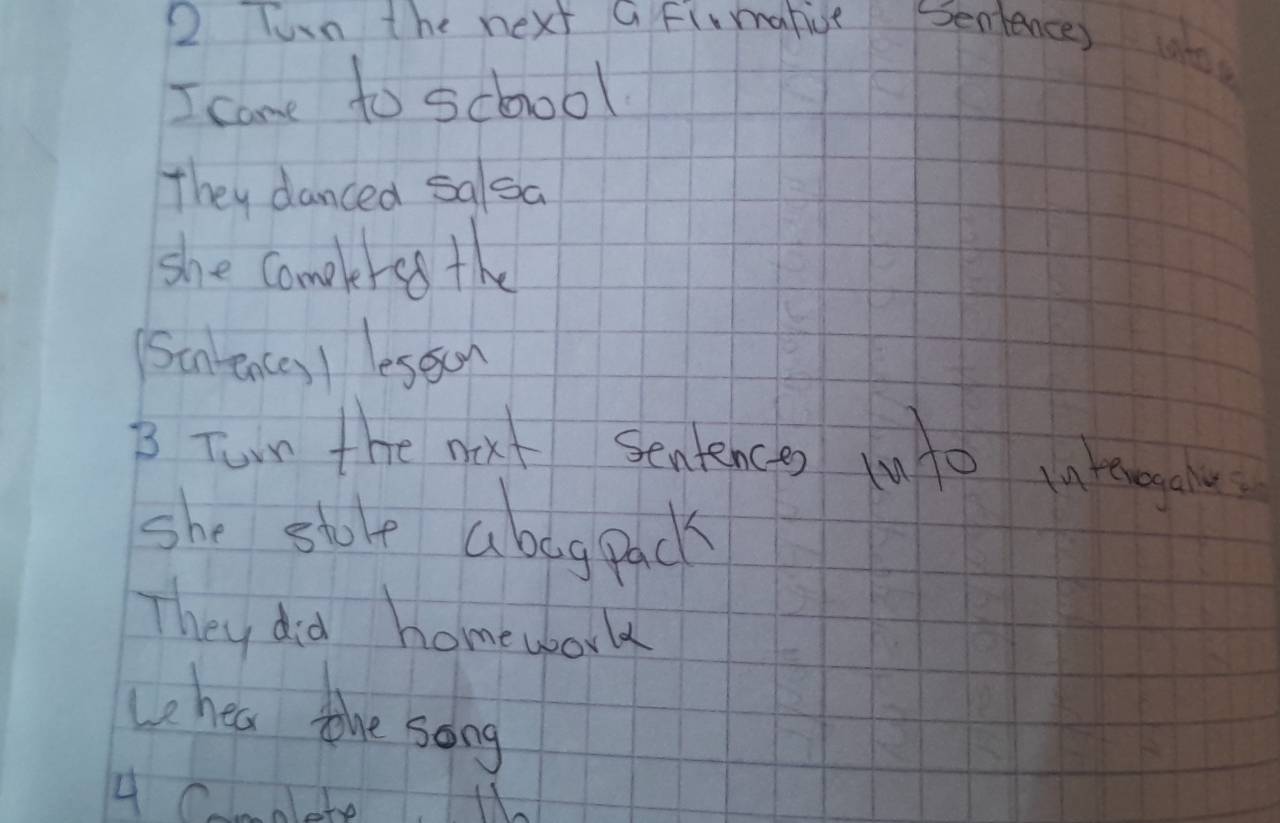 2 Turn the next afirmative Sentences into
I came to school
They danced salsa
she completed the
(Sentences) lesson
3 Turn the next Sentences into interrogative
She stole a bagpack
They did homework
we hear the song
4 Complete the